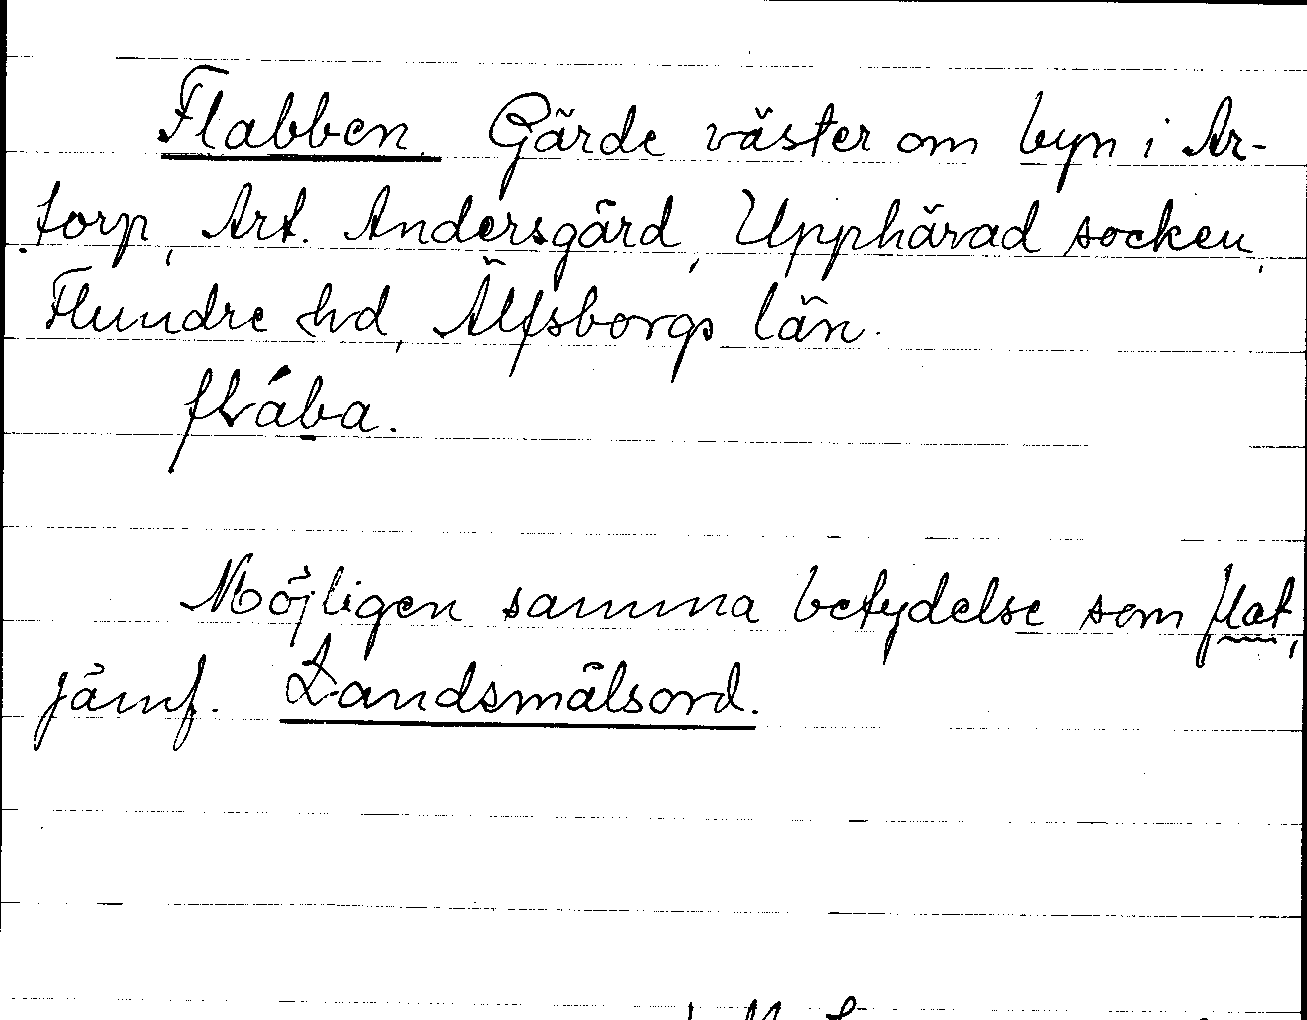 Flabben. Gärde väster om byn i Ar-
torp, Art. Andersgård, Upphärad socken,
Flundre hd, Älfsborgs län.
flába.
Möjligen samma betydelse som flat,
jämf. Landsmålsord.